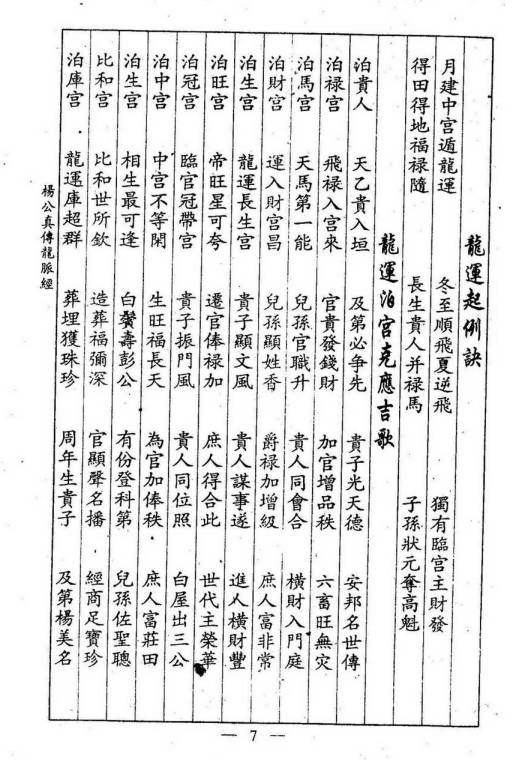 龍運起例訣
月建中宮遁龍運 冬至順飛夏逆飛 獨有臨宮主財發
得田得地福禄隨 長生貴人并禄馬 子孫狀元奪高魁
龍運泊宮克應吉歌
泊貴人 天乙貴入垣 及第必争先 貴子光天德 安邦名世傳
泊禄宮 飛禄入宮來 官貴發錢財 加官增品秩 六畜旺無灾
泊馬宮 天馬第一能 兒孫官職升 貴人同會合 橫財入門庭
泊財宮 運入財宮昌 兒孫顯姓香 爵禄加增級 庶人富非常
泊生宮 龍運長生宮 貴子顯文風 貴人謀事遂 進人橫財豐
泊旺宮 帝旺星可夸 遷官俸禄加 庶人得合此 世代主榮華
泊冠宮 臨官冠帶宮 貴子振門風 貴人同位照 白屋出三公
泊中宮 中宮不等閑 生旺福長天 為官加俸秩 庶人富莊田
泊生宮 相生最可逢 白鬢壽彭公 有份登科第 兒孫佐聖聰
比和宮 比和世所欽 造葬福彌深 官顯聲名播 經商足寶珍
泊庫宮 龍運庫超群 葬埋獲珠珍 周年生貴子 及第楊美名
楊公真傳龍脈經
— 7 —